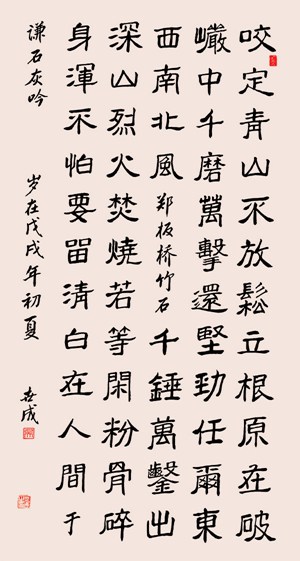 咬定青山不放鬆立根原在破
巖中千磨萬擊還堅勁任爾東
西南北風郑板桥竹石千錘萬鑿出
深山烈火焚燒若等閑粉骨碎
身渾不怕要留清白在人間于
谦石灰吟 岁在戊戌年初夏